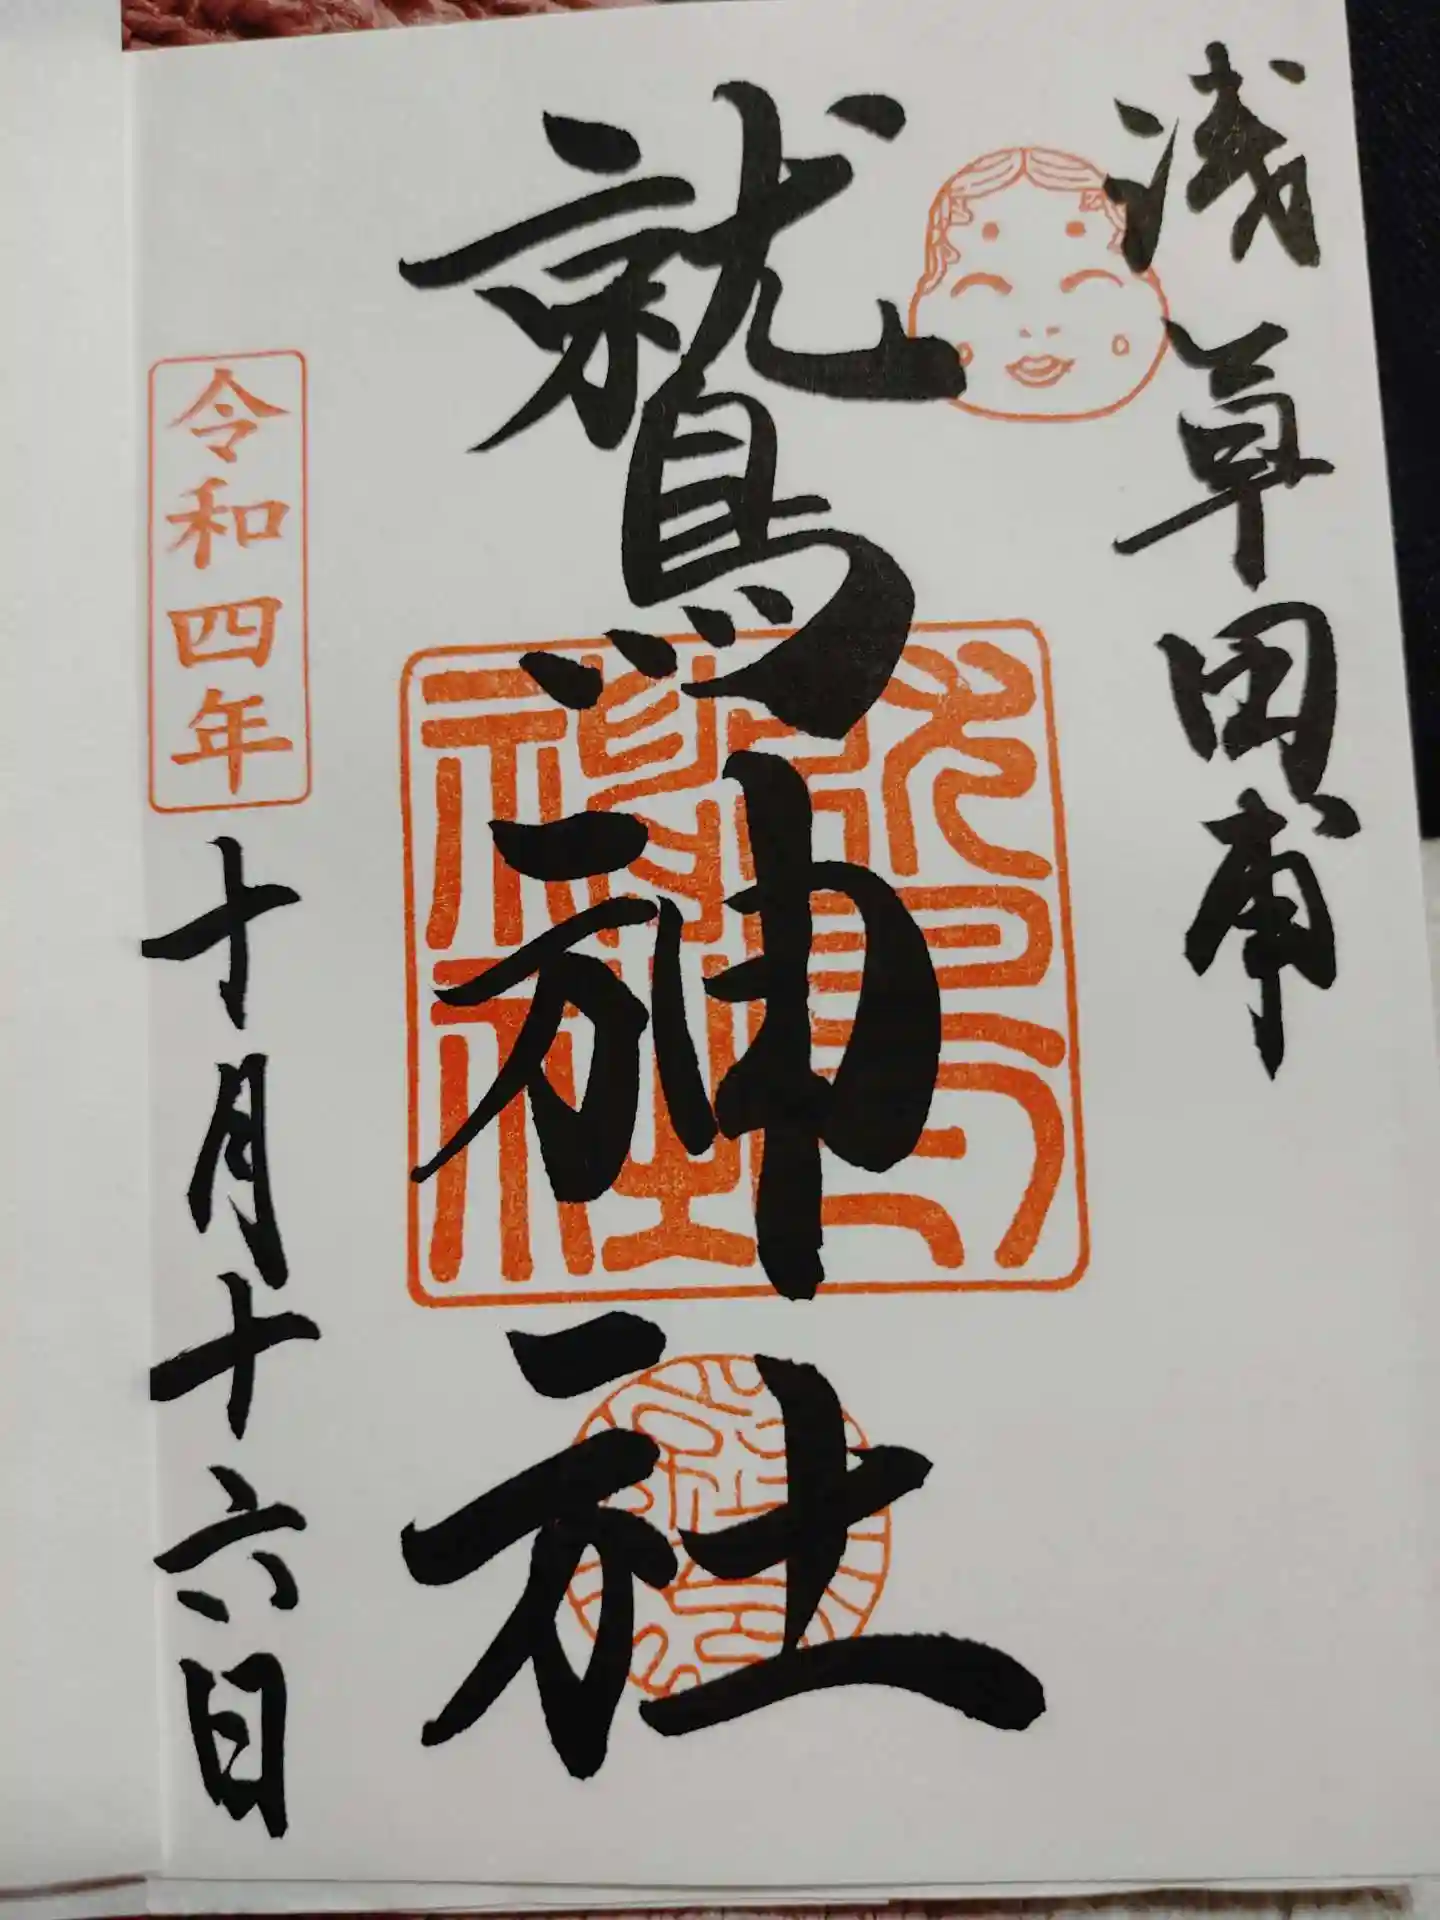 浅草田甫
鷲神社
鷲神社
令和四年
十月十六日